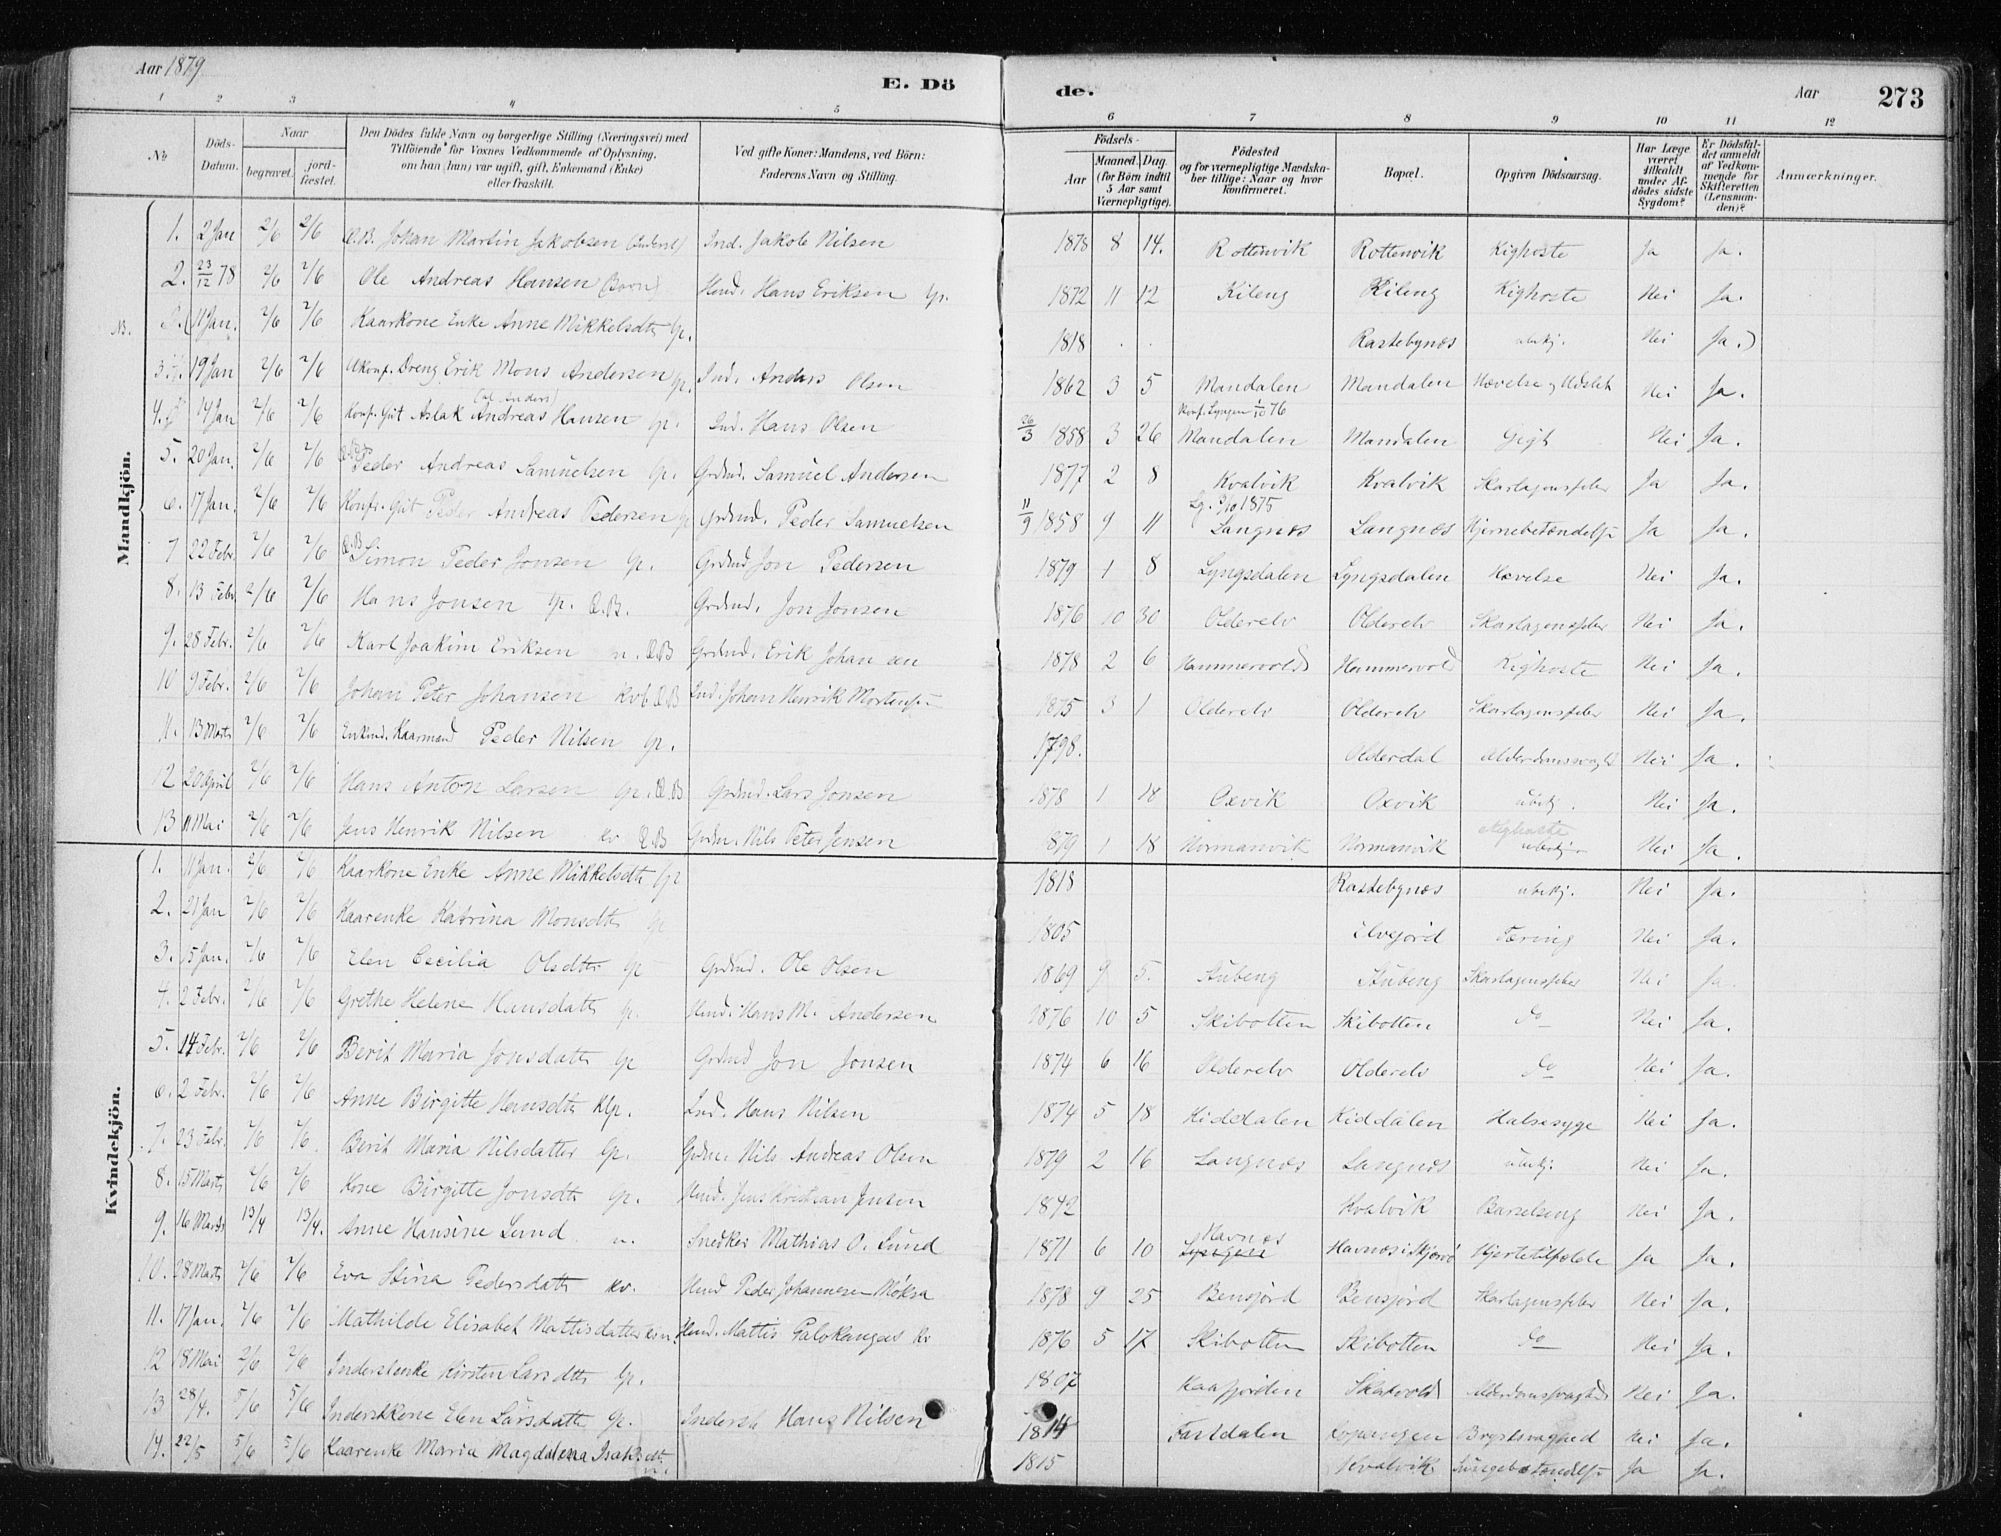 Aar 1879. E. Döde. Aar 273
1 2 3 4 5 6 7 8 9 10 11 12
No Döds-Datum. Naar begravet. jordfæstet. Den Dödes fulde Navn og borgerlige Stilling (Næringsvei) med Tilföiende for Voxnes Vedkommende af Oplysning, om han (hun) var ugift, gift, Enkemand (Enke) eller fraskilt. Ved gifte Koner: Mandens, ved Börn: Faderens Navn og Stilling. Födsels- Aar Maaned. Dag. (for Börn indtil 5 Aar samt Værnepligtige). Födested og for værnepligtige Mandskaber tillige: Naar og hvor konfirmeret. Bopæl. Opgiven Dödsaarsag. Har Læge været tilkaldt under Afdödes sidste Sygdom? Er Dödsfaldet anmeldt af Vedkommende for Skifteretten (Lensmanden)? Anmærkninger.
Mandkjön.
1. 2 Jan 2/6 2/6 Q.B. Johan Martin Jakobsen Ind. Jakob Nilsen 1878 8 14. Rottenvik Rottenvik Kighoste Ja Ja.
2. 23/12 78 2/6 2/6 Ole Andreas Hansen (Barn) Hmd. Hans Eriksen Gp. 1872 11 12 Kileng Kileng Kighoste Nei Ja.
NB. 3. (11 Jan. 2/6 2/6 Kaarkone Enke Anne Mikkelsdtr Gp. 1818 . . Rastebynæs ubekj. Nei Ja.)
3 19 Jan 2/6 2/6 Ukonf. Dreng Erik Mons Andersen Gp. Ind. Anders Olsen 1862 3 5 Mandalen Mandalen Hævelse og Udslet Nei Ja.
4. 14 Jan 2/6 2/6 Konf. Gut Aslak (al. Anders) Andreas Hansen Gp. Ind. Hans Olsen 26/3 1858 3 26 Konf. Lyngen 1/10 76 Mandalen Mandalen Gigt Nei Ja.
5. 20 Jan. 2/6 2/6 Peder Andreas Samuelsen Gp. Grdmd. Samuel Andersen 1877 2 8 Kvalvik Kvalvik Skarlagensfeber Ja Ja.
6. 17 Jan. 2/6 2/6 Konfr. Gut Peder Andreas Pedersen Gp Grdmd. Peder Samuelsen 11/9 1858 9 11 Lg. /10 1875 Langnæs Langnæs Hjernebetændelse Ja Ja.
7 22 Febr. 2/6 2/6 Q.B Simon Peder Jonsen Gp. Grdmd Jon Pedersen 1879 1 8 Lyngsdalen Lyngsdalen Hævelse Nei Ja.
8. 13 Febr 2/6 2/6 Hans Jonsen Gp. Q.B. Grdmd. Jon Jonsen 1876 10 30 Olderelv Olderelv Skarlagensfeber Nei Ja.
9. 28 Febr. 2/6 2/6 Karl Joakim Eriksen n. Q.B Grdmd. Erik Johansen 1878 2 6 Hammervold Hammervold Kighoste Nei Ja.
10 9 Febr. 2/6 2/6 Johan Peter Johansen Kvb. Q.B Ind. Johan Henrik Mortensen 1875 3 1 Olderelv Olderelv Skarlagensfeber Nei Ja.
11. 13 Marts 2/6 2/6 Enkmd. Kaarmand Peder Nilsen Gp. 1798. Olderdal Alderdomssvaghd Nei Ja.
12 20 April 2/6 2/6 Hans Anton Larsen Gp. Q.B Grdmd. Lars Jonsen 1878 1 18 Oxvik Oxvik ubekj. Nei Ja.
13 11 Mai 2/6 2/6 Jens Henrik Nilsen kv Q.B Grdm. Nils Peter Jensen 1879 1 18 Normanvik Normanvik Kighoste ubekj. Nei Ja.
Kvindekjön.
1. 11 Jan. 2/6 2/6 Kaarkone Enke Anne Mikkelsdtr Gp 1818 Rastebynæs ubekj. Nei Ja.
2. 21 Jan 2/6 2/6 Kaarenke Katrina Monsdtr Gp 1805 Elvejord Tæring Nei Ja.
3. 15 Jan. 2/6 2/6 Elen Cecilia Olsdtr Gp Grdmd. Ole Olsen 1869 9 5. Stubeng Stubeng Skarlagensfeber Nei Ja
4. 2 Febr. 2/6 2/6 Grethe Helene Hansdatter Gp. Hmd. Hans M. Andersen 1876 10 5 Skibotten Skibotten do Nei Ja.
5. 14 Febr. 2/6 2/6 Berit Maria Jonsdatter Gp Grdmd Jon Jonsen 1874 6 16 Olderelv Olderelv do Nei Ja.
6. 2 Febr. 2/6 2/6 Anne Birgitte Hansdtr Klp. Ind. Hans Nilsen 1874 5 18 Kiddalen Kiddalen Halssyge Nei Ja.
7. 23 Febr. 2/6 2/6 Berit Maria Nilsdatter Gp. Grdm. Nils Andreas Olsen 1879 2 16 Langnæs Langnæs ubekj. Nei Ja.
8. 15 Marts 2/6 2/6 Kone Birgitte Jonsdtr Gp. Hmd. Jens Kristian Jensen 1842 Kvalvik Barselseng Nei Ja.
9. 16 Marts 13/4 13/4. Anne Hansine Lund n. Snedker Mathias O. Lund 1871 6 10 Havnæs Lyngen Havnæs i Skjervö Hjertetilfælde Ja Ja.
10. 28 Marts 2/6 2/6 Eva Stina Pedersdatter kv. Hmd Peder Johannesen Möksa 1878 9 25 Bensjord Bensjord Skarlagensfeber Nei Ja.
11. 17 Jan. 2/6 2/6 Mathilde Elisabet Mattisdatter Hmd. Mattis Galvkangas kv 1876 5 17 Skibotten Skibotten do Nei Ja.
12 18 Mai 2/6 2/6 Inderstenke Kirsten Larsdtr Gp. 1807 Kaafjorden Skatvold Alderdomssvaghed Nei Ja.
13 28/4. 5/6 5/6 Inderstkone Elen Larsdatter Gp. Inderst Hans Nilsen 1814 Fastdalen Kopangen Brystsvaghed Nei Ja.
14. 22/5 5/6 5/6 Kaarenke Maria Magdalena Isaksdtr n. 1815 Kvalvik Lungebetændelse Ja Ja.